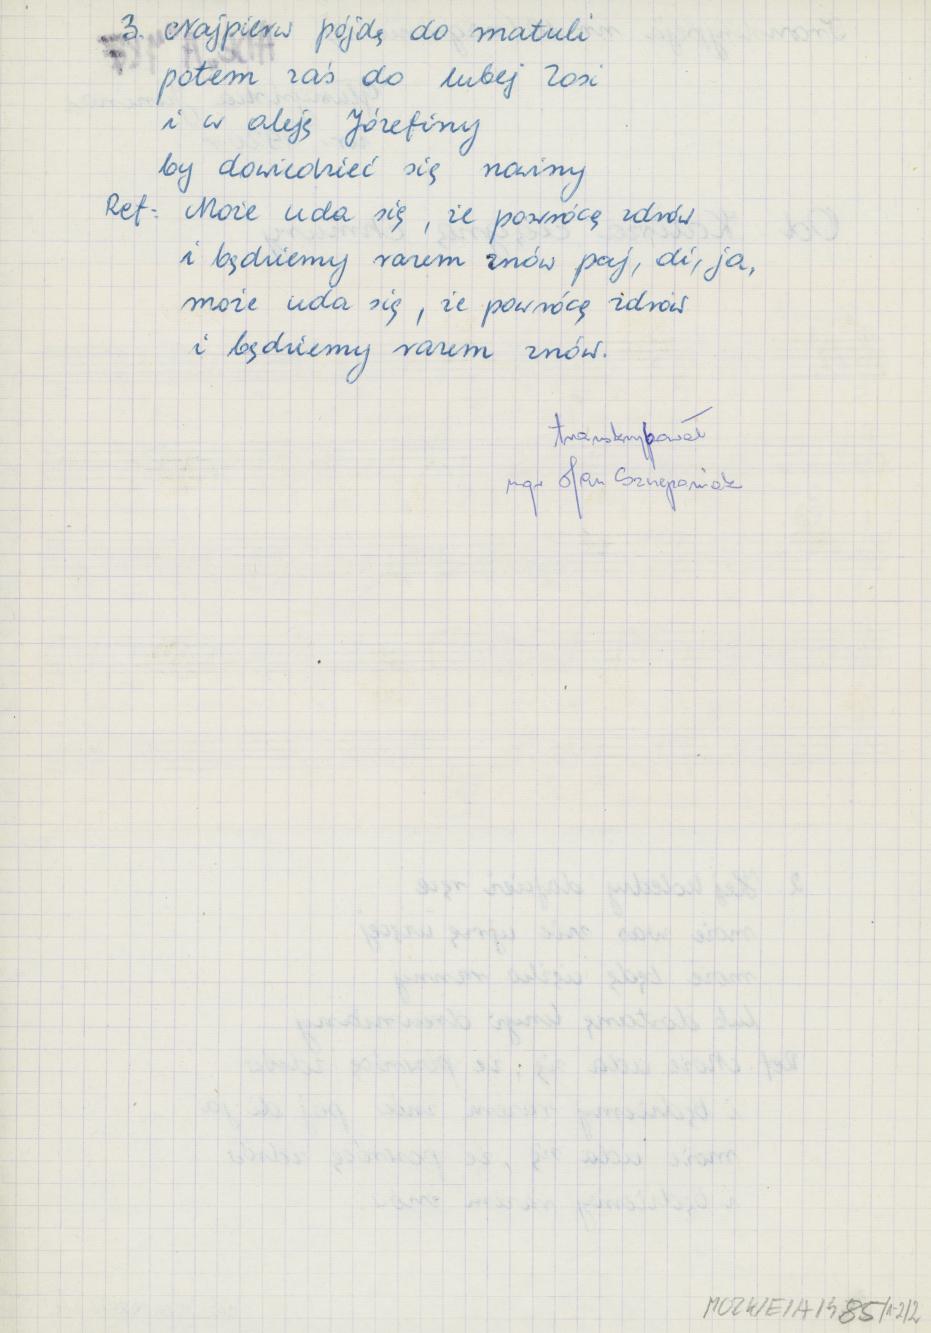 3. Najpierw pójdę do matuli
potem zaś do lubej Zosi
i w aleję Józefiny
by dowiedzieć się nowiny
Ref: Może uda się, że powrócę zdrów
i będziemy razem znów paj, di, ja,
może uda się, że powrócę zdrów
i będziemy razem znów.
transkrypował
mgr Jan Szczepaniak